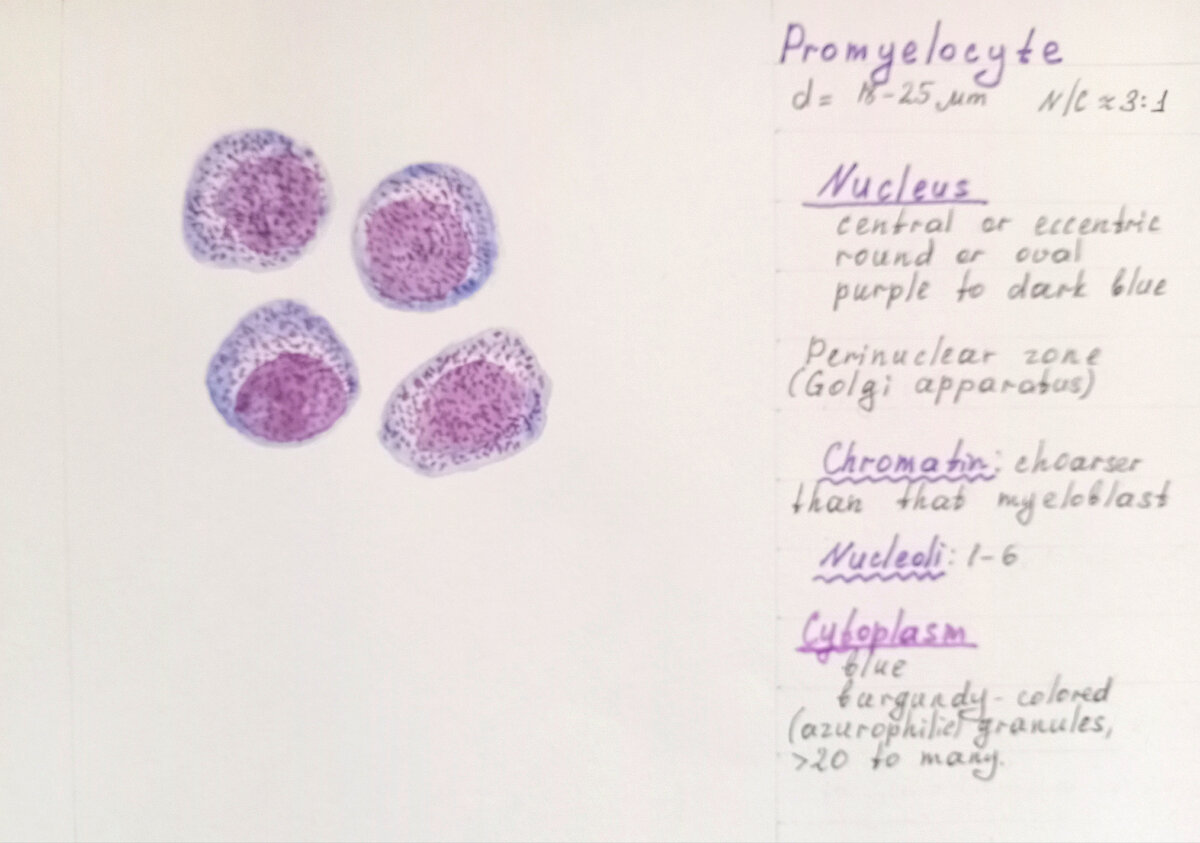 Promyelocyte
d = 18-25 µm N/C ≈ 3:1
Nucleus
central or eccentric
round or oval
purple to dark blue
Perinuclear zone
(Golgi apparatus)
Chromatin: choarser
than that myeloblast
Nucleoli: 1-6
Cytoplasm
blue
burgundy-colored
(azurophilic) granules,
>20 to many.